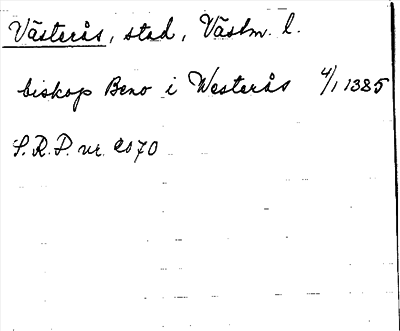 Västerås, stad, Västm. l.
biskop Beno i Westerås 4/1 1385
S.R.P. nr. 2070